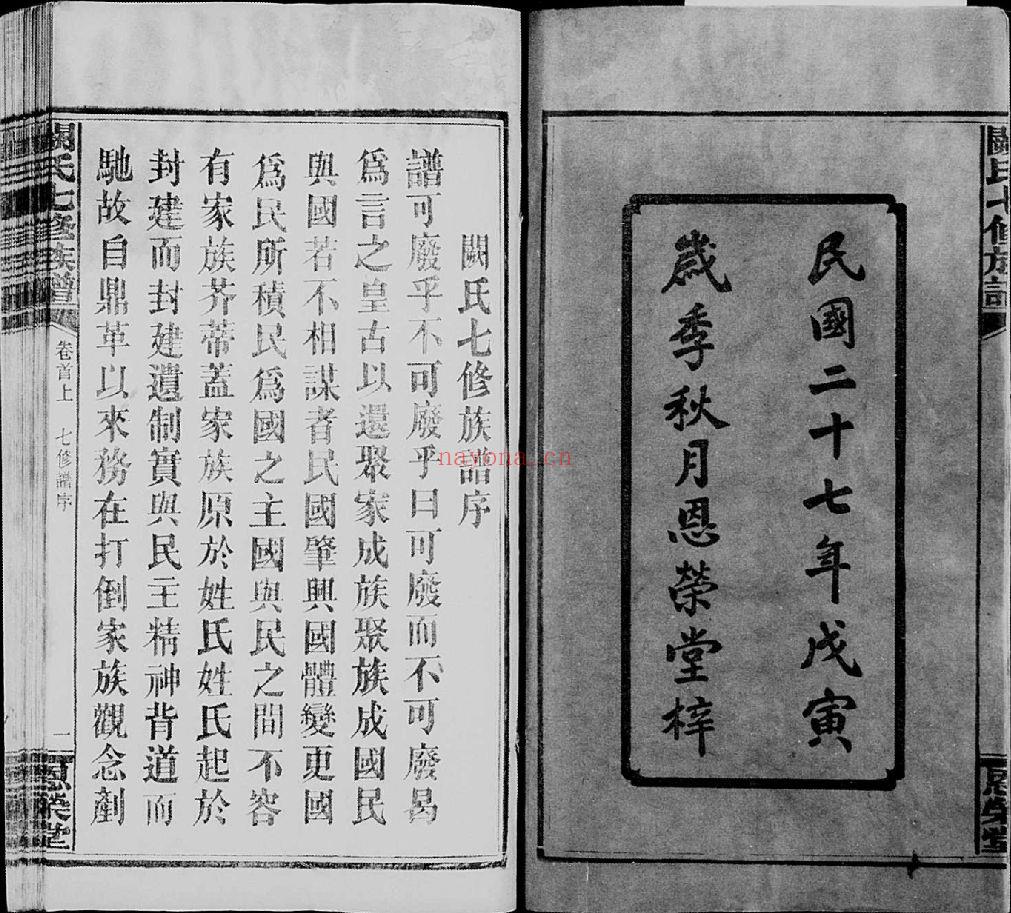 民國二十七年戊寅
歲季秋月恩榮堂梓
闕氏七修族譜序
譜可廢乎不可廢乎曰可廢而不可廢曷
爲言之皇古以還聚家成族聚族成國民
與國若不相謀者民國肇興國體變更國
爲民所積民爲國之主國與民之間不容
有家族芥蒂蓋家族原於姓氏姓氏起於
封建而封建遺制實與民主精神背道而
馳故自鼎革以來務在打倒家族觀念剷
闕氏七修族譜
卷首上 七修譜序
一
恩榮堂
闕氏七修族譜
恩榮堂
nayona.cn